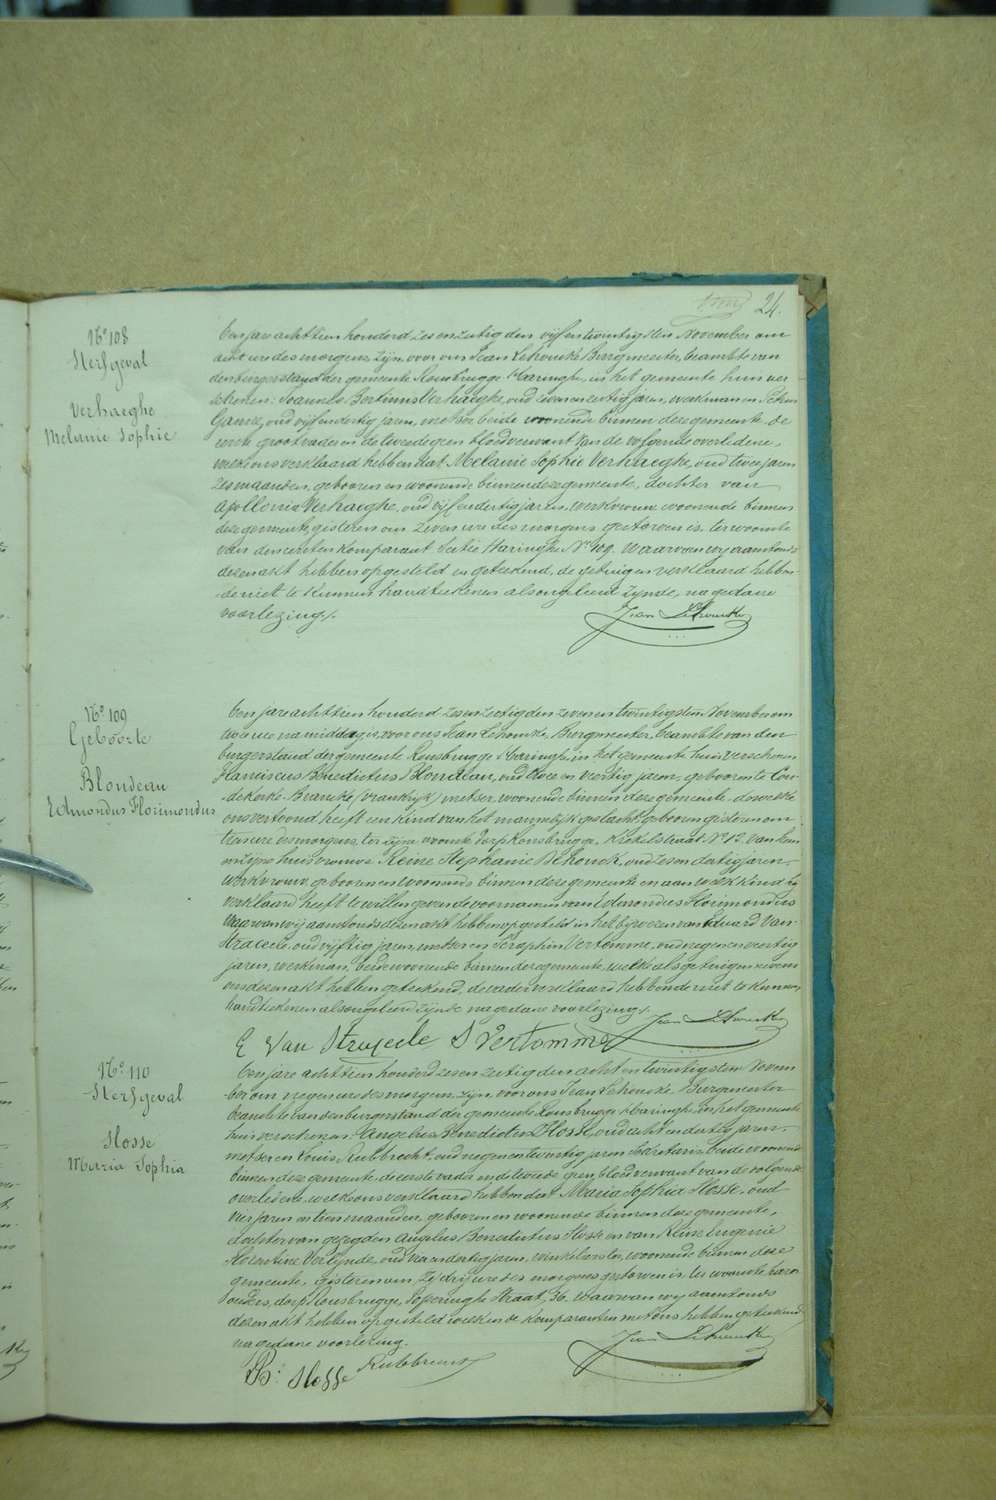 24.
N° 108
Sterfgeval
Verhaeghe
Melanie Sophie
Een jare achttien honderd zes en zestig den vijf en twintigsten November om
acht ure des morgens zijn voor ons Jean Lehoucke Burgmeester, beambte van
den burgerstand der gemeente Rousbrugge Haringhe, in het gemeente huis ver
schenen: Joannes Bertinus Verhaeghe, oud zeven en zestig jaren, werkman en
oud vijf en dertig jaren, metser beide woonende binnen deze gemeente de
eerste grootvader en de tweede geen bloedverwant van de volgende overledene,
welke ons verklaard hebben dat Melanie Sophie Verhaeghe, oud twee jaren
zes maanden, geboren en woonende binnen deze gemeente, dochter van
Apollonia Verhaeghe, oud vijf en dertig jaren, werkvrouw woonende binnen
deze gemeente, gisteren om zeven ure des morgens gestorven is, ter woonste
van den eersten komparant Sectie Haringhe N° 109. Waarvan wy aanstonds
dezen akt hebben opgesteld en geteekend, de getuigen verklaard hebben
de niet te kunnen handteekenen als ongeleerd zynde, na gedane
voorlezing.
Jean Lehoucke
N° 109
Geboorte
Blondeau
Edmondus Florimondus
Een jare achttien honderd zes en zestig den zeven en twintigsten November om
twee ure na middag is voor ons Jean Lehoucke, Burgmeester, beambte van den
burgerstand der gemeente Rousbrugge Haringhe, in het gemeente huis verschenen
Franciscus Benedictus Blondeau, oud twee en veertig jaren, geboren te Cou
dekerke-Branche (Vrankrijk) metser, woonende binnen deze gemeente dewelke
ons vertoond heeft een kind van het mannelijk geslacht, geboren gisteren om
tien ure des morgens, ter zijne woonste dorp Rousbrugge, Krekelstraat N° 12. van hem
en zijne huisvrouwe Reine Stephanie Dehouck, oud zes en dertig jaren,
werkvrouw, geboren en woonende binnen deze gemeente en aan welk kind hij
verklaard heeft te willen geven de voornamen van Edmondus Florimondus
Waarvan wij aanstonds dezen akt hebben opgesteld in het bijwezen van Eduard Van
Straceele, oud vijftig jaren, metser en Seraphin Vertomme, oud negen en veertig
jaren, werkman, beide woonende binnen deze gemeente, welk als getuigen nevens
ons dezen akt hebben geteekend, de vader verklaard hebbende niet te kunnen
handteekenen als ongeleerd zijnde na gedane voorlezing.
Jean Lehoucke
E Van Straceele S Vertomme
N° 110
Sterfgeval
Hosse
Maria Sophia
Een jare achttien honderd zes en zestig den acht en twintigsten Novem
ber om negen ure des morgens, zijn voor ons Jean Lehoucke, Burgmeester
beambte van den burgerstand der gemeente Rousbrugge Haringhe, in het gemeente
huis verschenen: Angelus Benedictus Hosse, oud acht en dertig jaren,
metser en Louis Rubbrecht, oud negen en twintig jaren Secretaris beide woonende
binnen deze gemeente, de eerste vader en de tweede geen bloedverwant van de volgende
overledene, welke ons verklaard hebben dat Maria Sophia Hosse, oud
vier jaren en tien maanden, geboren en woonende binnen deze gemeente,
dochter van gezegden Angelus Benedictus Hosse en van Reine Eugenie
Florentine Verlynde, oud vier en dertig jaren, winkelierster, woonende binnen deze
gemeente, gisteren om drij ure des morgens gestorven is, ter woonste harer
ouders, dorp Rousbrugge, Poperinghe Straat, 36. Waarvan wy aanstonds
dezen akt hebben opgesteld welken de komparanten met ons hebben geteekend
na gedane voorlezing.
Jean Lehoucke
B: Hosse Rubbrecht